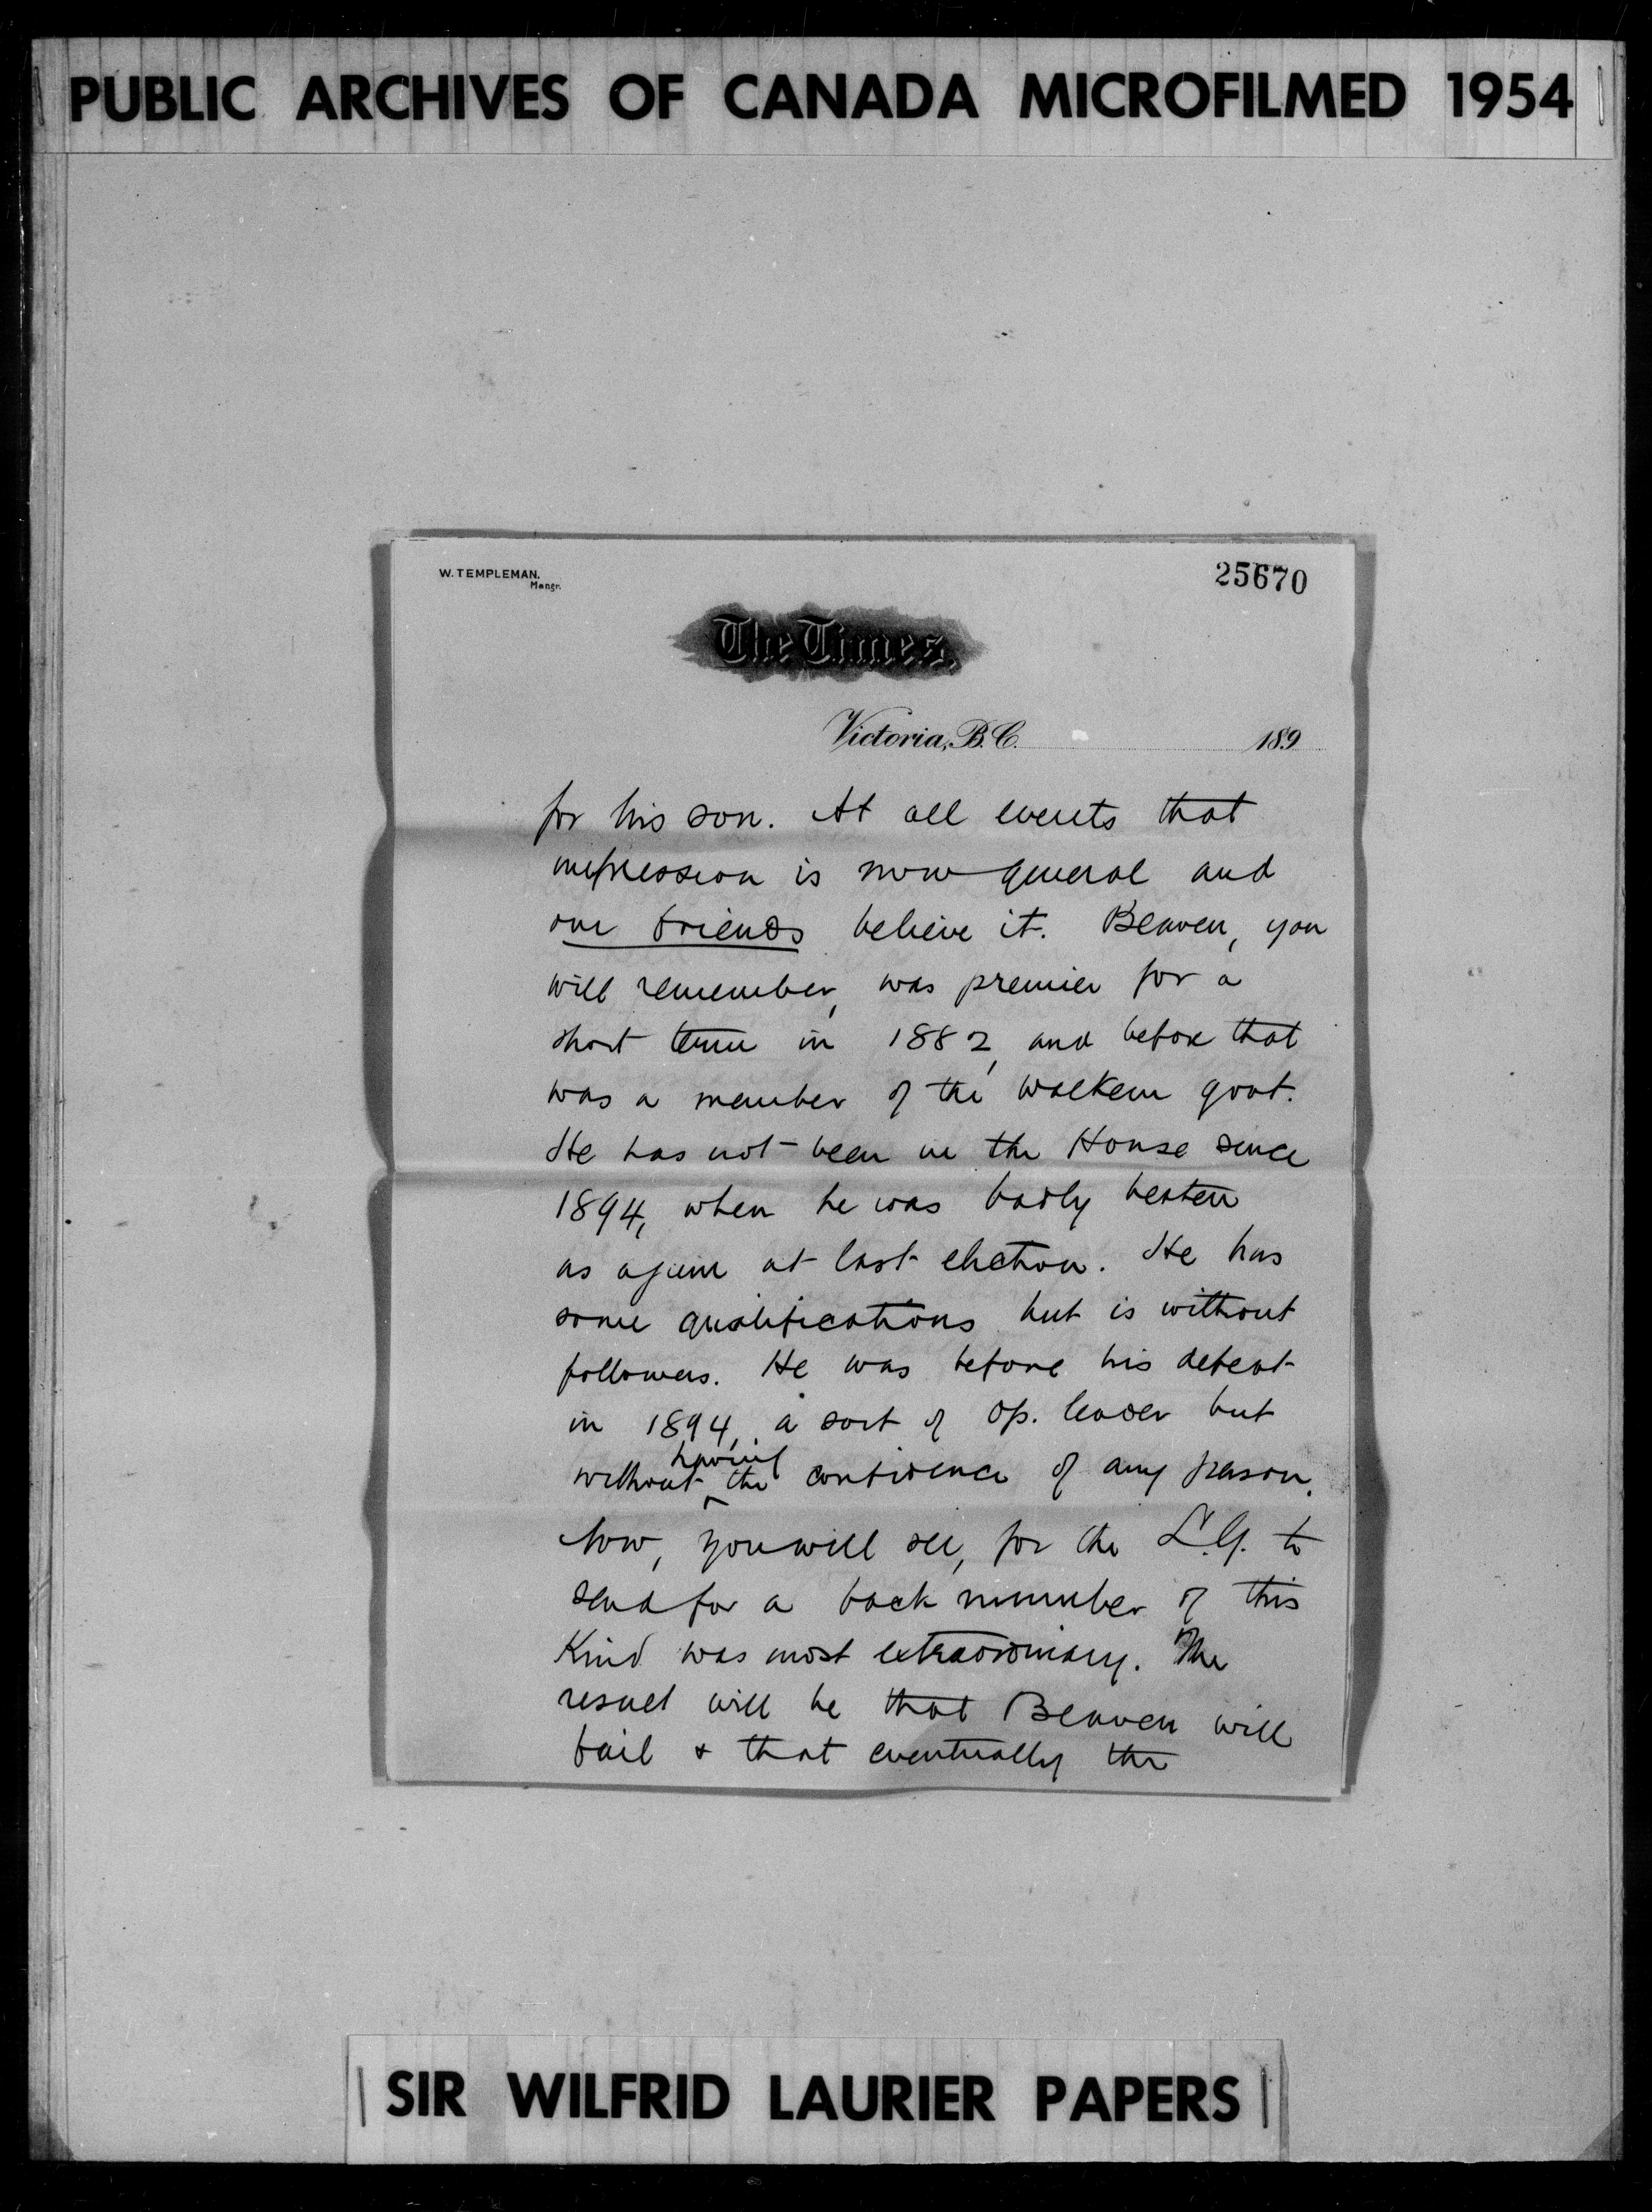 PUBLIC ARCHIVES OF CANADA MICROFILMED 1954
W. TEMPLEMAN,
Mangr.
25670
The Times.
Victoria, B.C. 189
for his son. At all events that
impression is now general and
our friends believe it. Beaven, you
will remember, was premier for a
short term in 1882, and before that
was a member of the Walkem govt.
He has not been in the House since
1894, when he was badly beaten
as again at last election. He has
some qualifications but is without
followers. He was before his defeat
in 1894, a sort of Op. leader but
having
without the confidence of any person.
Now, you will see, for the L.G. to
send for a back number of this
kind was most extraordinary. The
result will be that Beaven will
fail & that eventually the
SIR WILFRID LAURIER PAPERS